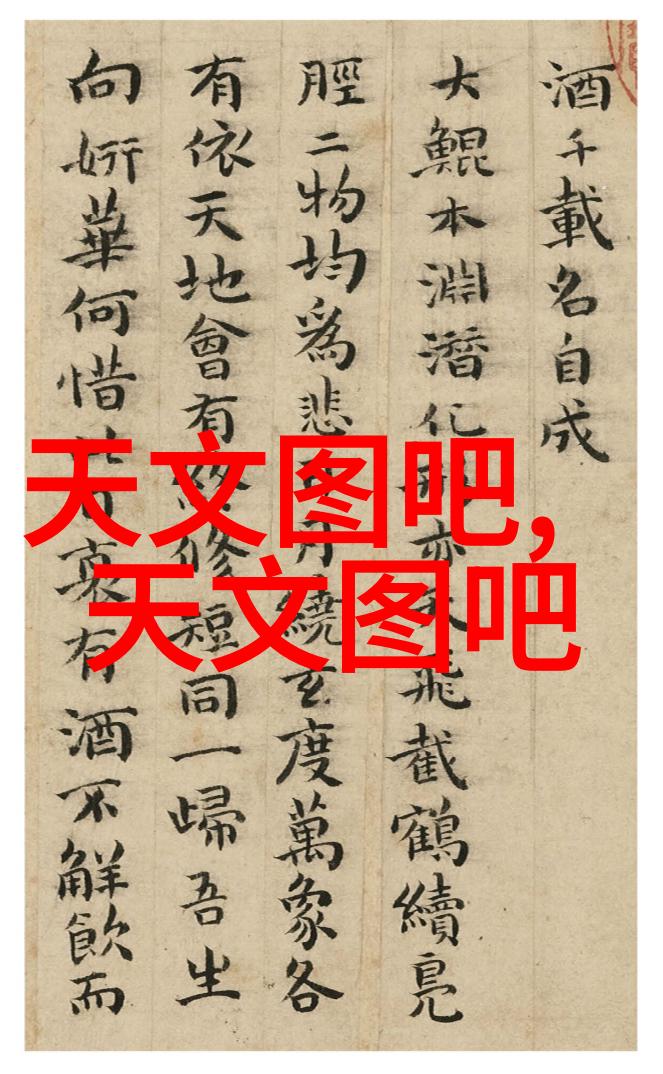 酒千載名自成
大鯤本淵潛化形亦天飛截鶴續鳧
脛二物均爲悲月繞玄度萬象各
有依天地會有終修短同一歸吾生
向妍華何惜衰有酒不解飲而
天文图吧,
天文图吧